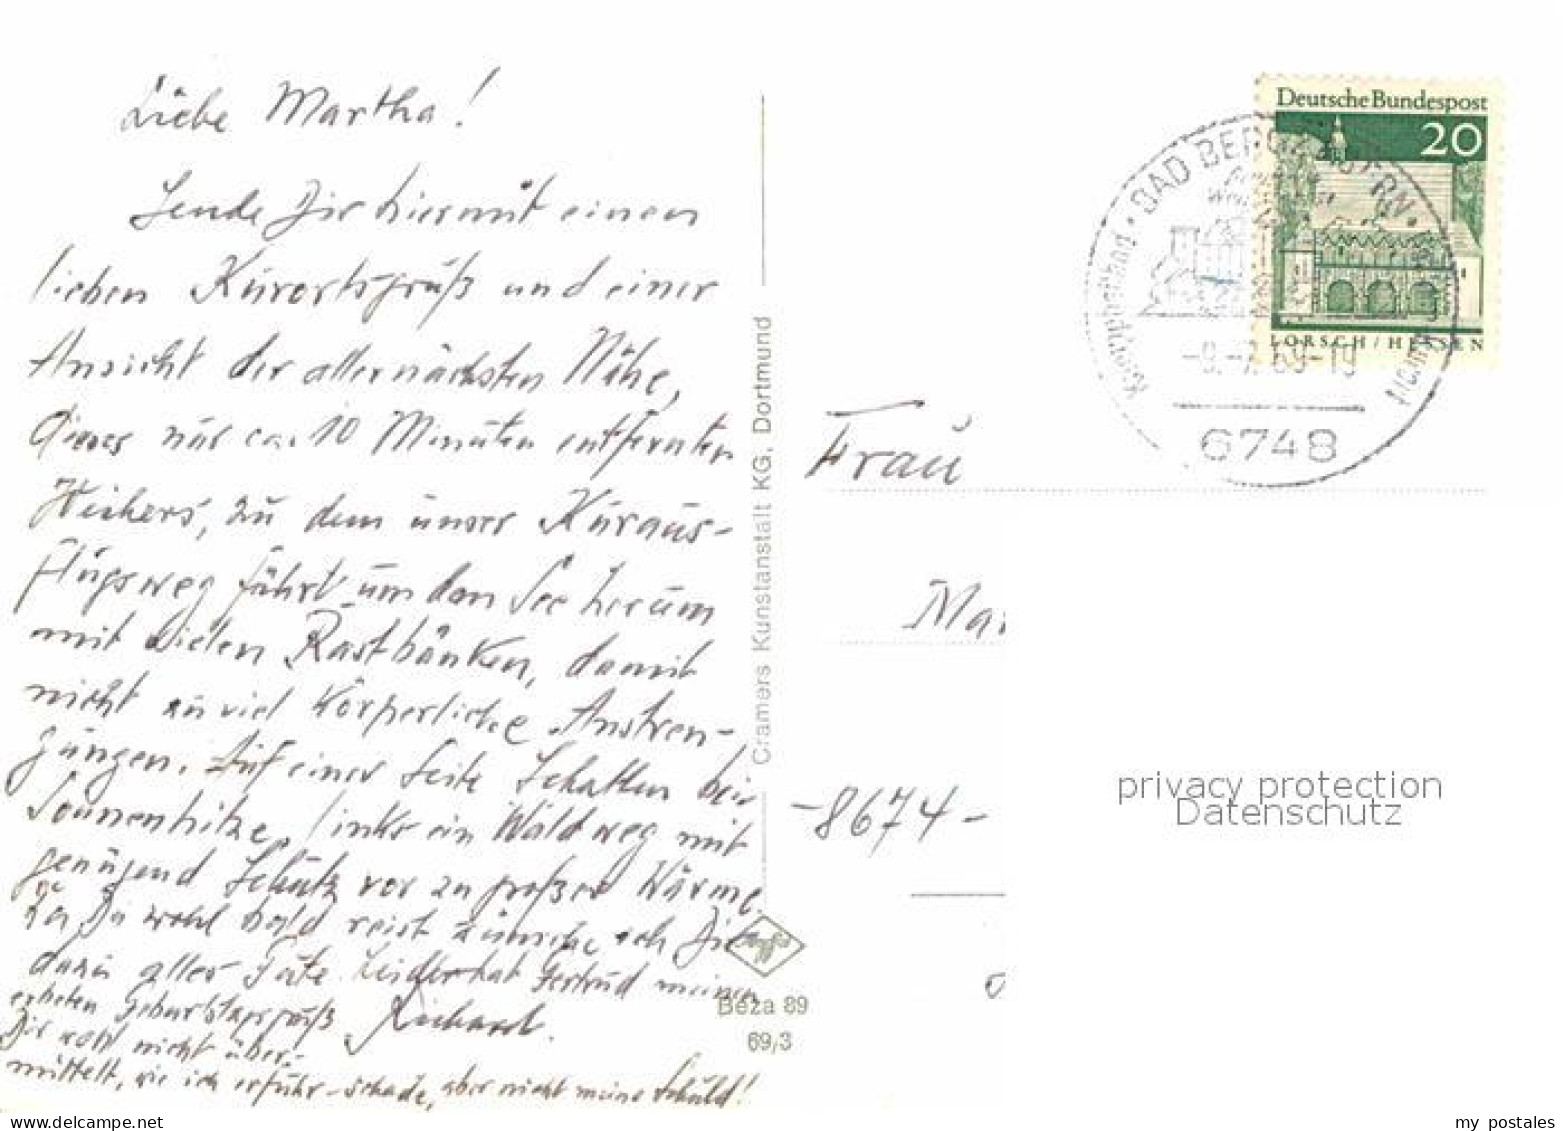 Liebe Martha!
Sende Dir hiermit einen
lieben Kurortsgruß und einer
Ansicht der allernächsten Nähe,
nur ca. 10 Minuten entfernten
Weihers, zu dem unser Kuraus-
flugsweg führt um den See herum
mit vielen Rastbänken, damit
nicht zu viel körperliche Anstren-
gungen. Auf einer Seite Schatten bei
Sonnenhitze, links ein Waldweg mit
genügend Schutz vor zu großer Wärme.
Da Du wohl bald reist wünsche ich Dir
dazu alles Gute. Leider hat Gertrud meinen
erbeten Geburtstagsgruß Richard.
Dir wohl nicht über-
mittelt, wie ich erfuhr - schade, aber nicht meine Schuld!
Cramers Kunstanstalt KG, Dortmund
Beza 89
69/3
Deutsche Bundespost
20
LORSCH / HESSEN
BAD BERGZABERN
Kneippheilbad
-9.-7.69-19
6748
Frau
Mar
-8674-
privacy protection
Datenschutz
delcampe.net
my_postales